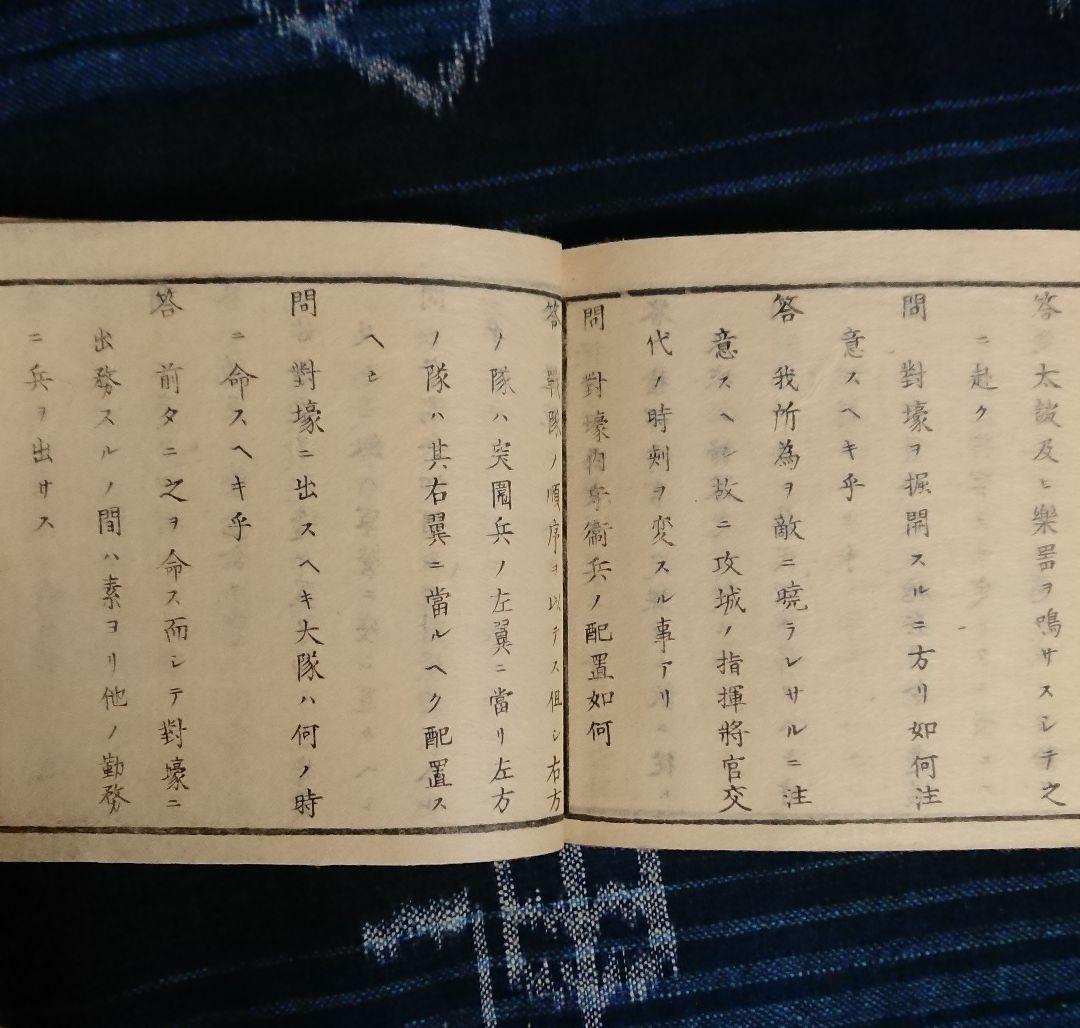 答 太鼓及ヒ樂器ヲ鳴サスシテ之
ニ赴ク
問 對壕ヲ掘開スルニ方リ如何注
意スヘキ乎
答 我所為ヲ敵ニ曉ラレサルニ注
意スヘシ故ニ攻城ノ指揮將官交
代ノ時刻ヲ変スル事アリ
問 對壕內歩衞兵ノ配置如何
答 戰隊ノ順序ヲ以テス但シ右方
ノ隊ハ突圍兵ノ左翼ニ當リ左方
ノ隊ハ其右翼ニ當ルヘク配置ス
ヘシ
問 對壕ニ出スヘキ大隊ハ何ノ時
ニ命スヘキ乎
答 前タニ之ヲ命ス而シテ對壕ニ
出務スルノ間ハ素ヨリ他ノ勤務
ニ兵ヲ出サス